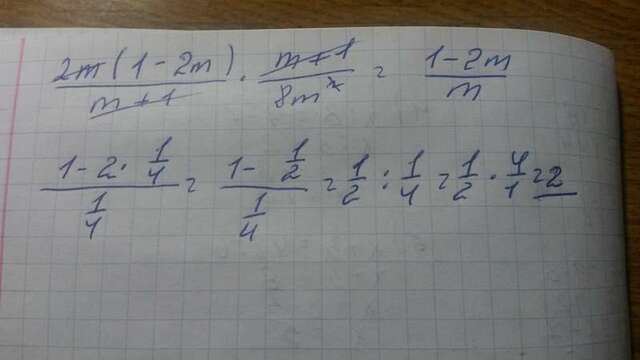 2m(1-2m)/(m+1) · (m+1)/(8m²) = (1-2m)/m
(1-2·1/4)/(1/4) = (1-1/2)/(1/4) = 1/2 : 1/4 = 1/2 · 4/1 = 2